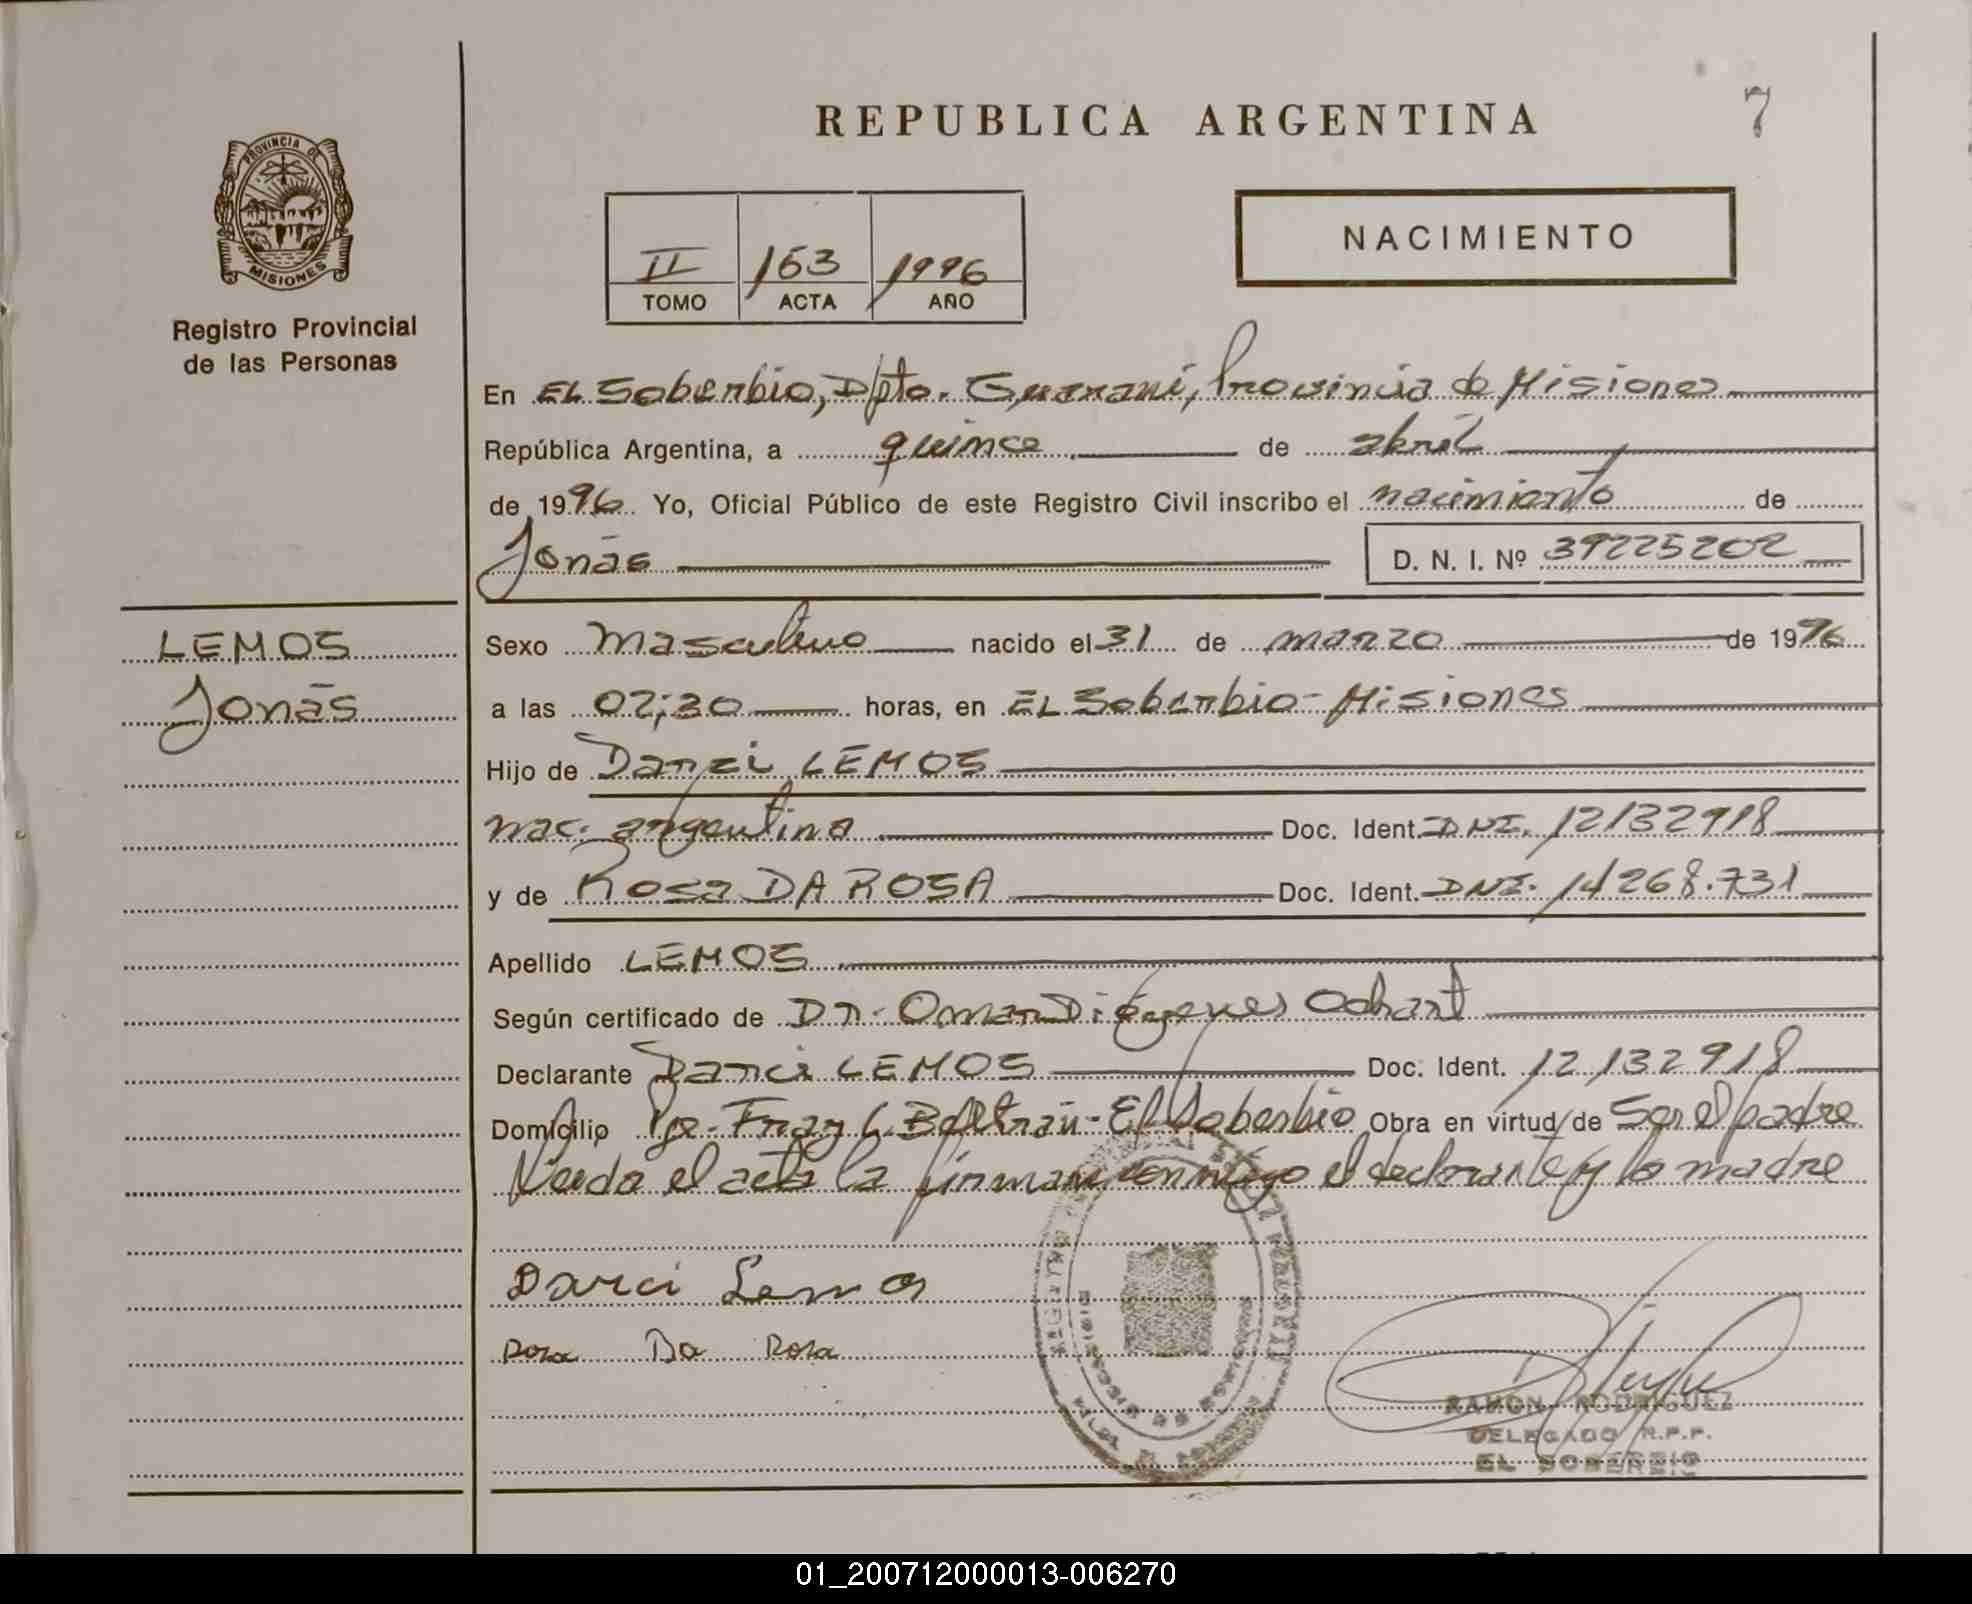 REPUBLICA ARGENTINA
7
PROVINCIA DE
MISIONES
Registro Provincial
de las Personas
II 163 1996
TOMO ACTA AÑO
NACIMIENTO
En EL Soberbio, Dpto. Guaraní, Provincia de Misiones
República Argentina, a quince de abril
de 1996 Yo, Oficial Público de este Registro Civil inscribo el nacimiento de
Jonás D. N. I. Nº 39225202
LEMOS
Jonás
Sexo masculino nacido el 31 de marzo de 1996
a las 02:30 horas, en EL Soberbio-Misiones
Hijo de Darci LEMOS
nac. argentina Doc. Ident. DNI. 12132918
y de Rosa DA ROSA Doc. Ident. DNI. 14268.731
Apellido LEMOS
Según certificado de Dr. Omar Diógenes
Declarante Darci LEMOS Doc. Ident. 12.132918
Domicilio Pje. Fray L. Beltrán-El Soberbio Obra en virtud de Ser el padre
Leída el acta la firman conmigo el declarante y la madre
Darci Lemos
Rosa Da Rosa
RAMON RODRIGUEZ
DELEGADO R.P.P.
EL SOBERBIO
01_200712000013-006270